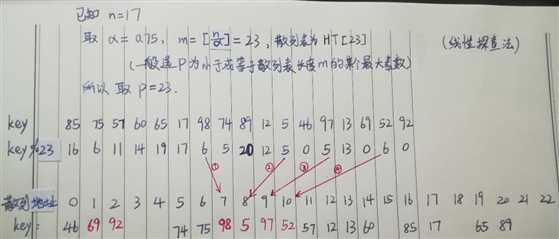 已知 n=17
取 α=0.75, m=[n/α]=23, 散列表为 HT[23] (线性探查法)
(一般选P为小于或等于散列表长度m的某个最大素数)
所以取 P=23.
key 85 75 57 60 65 17 98 74 89 12 5 46 97 13 69 52 92
key%23 16 6 11 14 19 17 6 5 20 12 5 0 5 13 0 6 0
① ② ③ ④
散列地址 0 1 2 3 4 5 6 7 8 9 10 11 12 13 14 15 16 17 18 19 20 21 22
key: 46 69 92 74 75 98 5 97 52 57 12 13 60 85 17 65 89